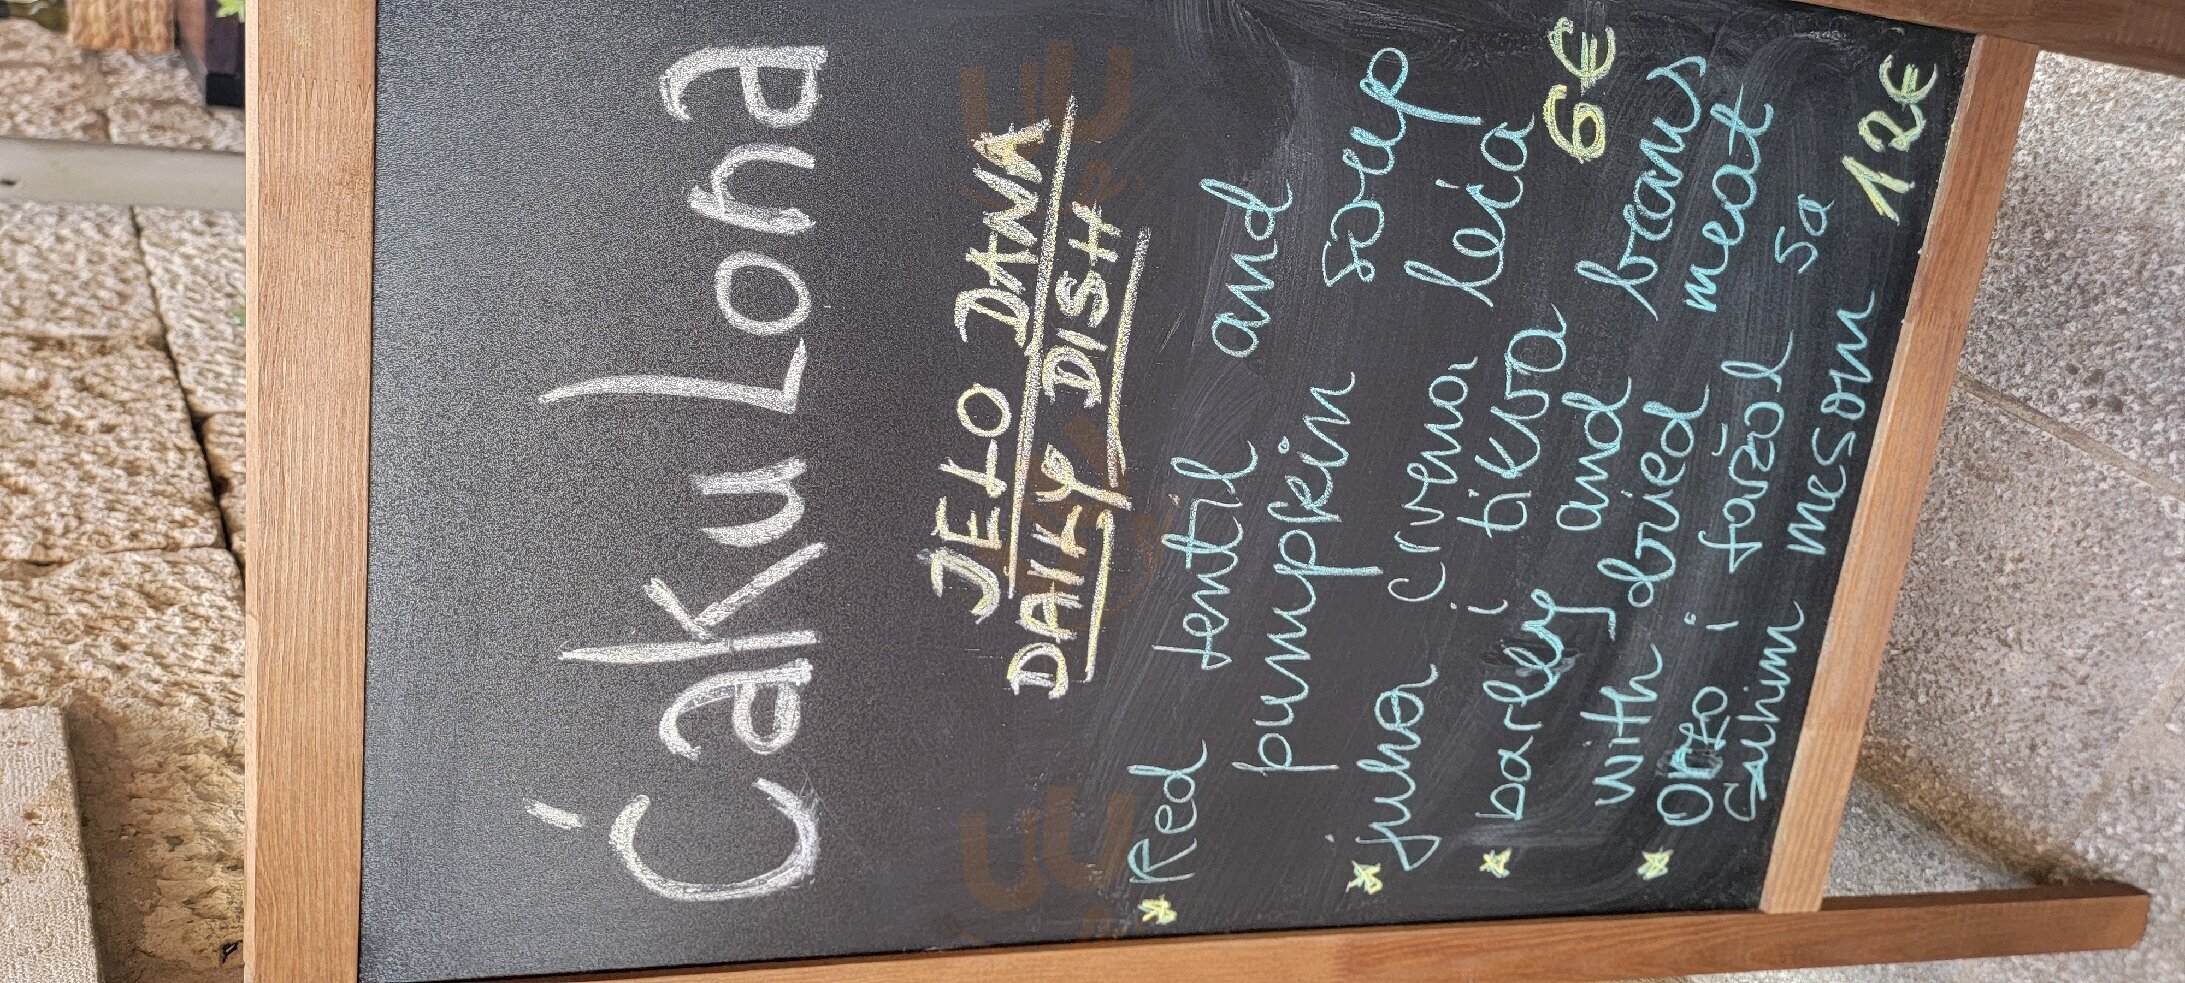 ĆakuLona
JELO DANA
DAILY DISH
Red lentil and
pumpkin soup
juha crvena leća
i tikva 6€
barley and beans
with dried meat
Orzo i fažol sa
suhim mesom 12€